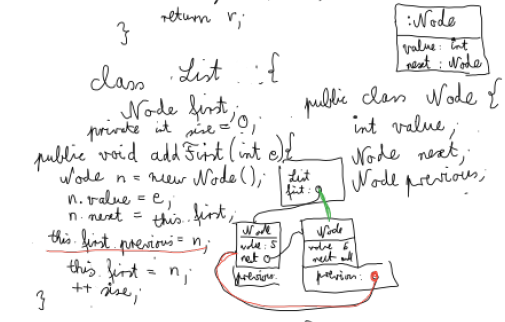 return r;
}
class List : {
Node first;
private int size = 0;
public void addFirst(int e){
Node n = new Node();
n.value = e;
n.next = this.first;
this.first.previous = n;
this.first = n;
++ size;
}
:Node
value: int
next : Node
public class Node {
int value;
Node next;
Node previous;
List
first:
Node
value: 5
next
previous:
Node
value 6
next null
previous: